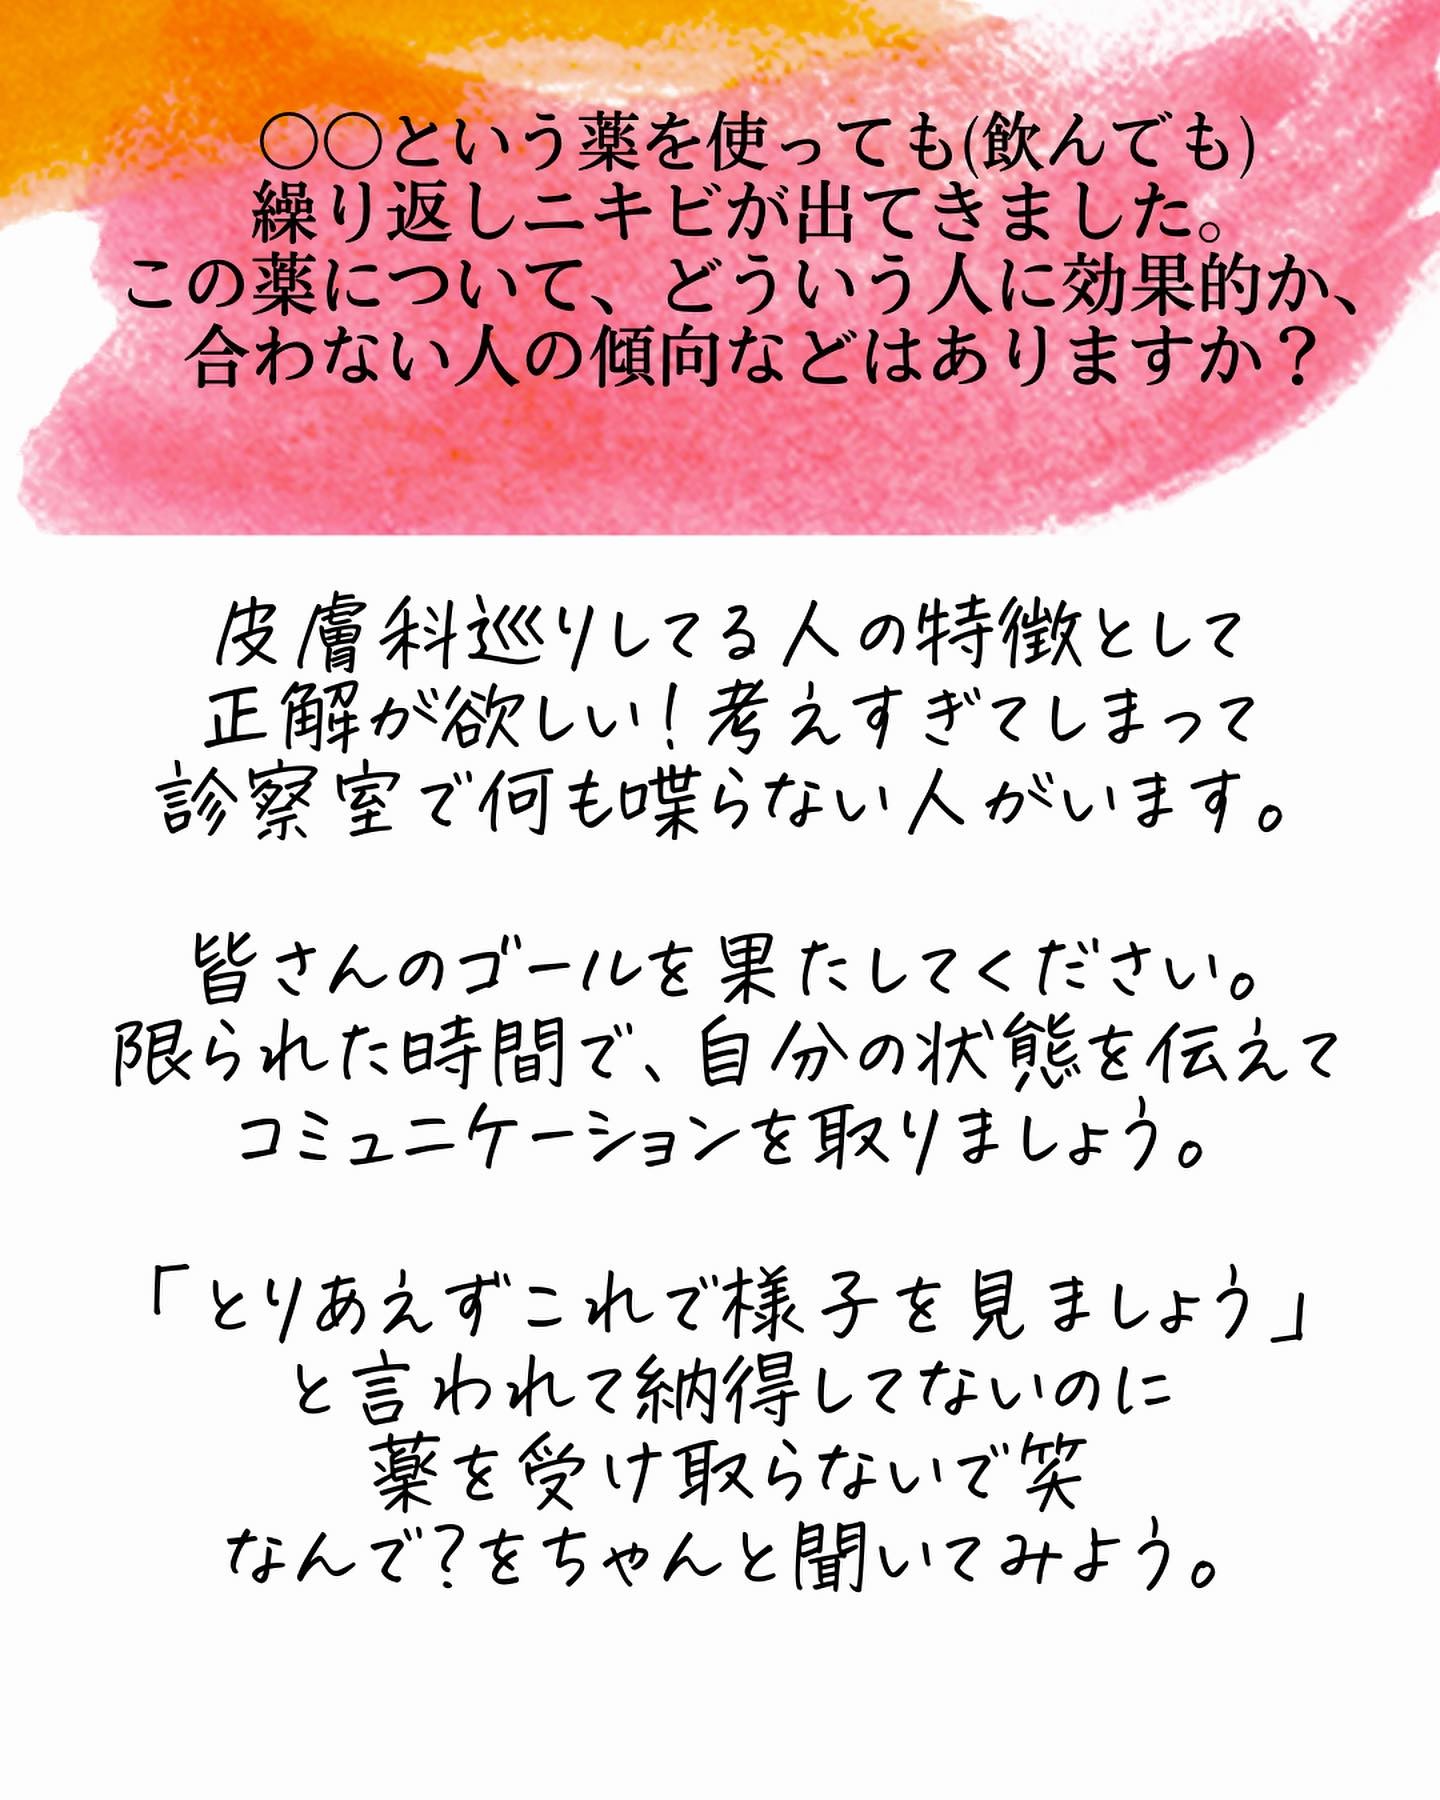 〇〇という薬を使っても(飲んでも)
繰り返しニキビが出てきました。
この薬について、どういう人に効果的か、
合わない人の傾向などはありますか？
皮膚科巡りしてる人の特徴として
正解が欲しい！考えすぎてしまって
診察室で何も喋らない人がいます。
皆さんのゴールを果たしてください。
限られた時間で、自分の状態を伝えて
コミュニケーションを取りましょう。
「とりあえずこれで様子を見ましょう」
と言われて納得してないのに
薬を受け取らないで笑
なんで？をちゃんと聞いてみよう。